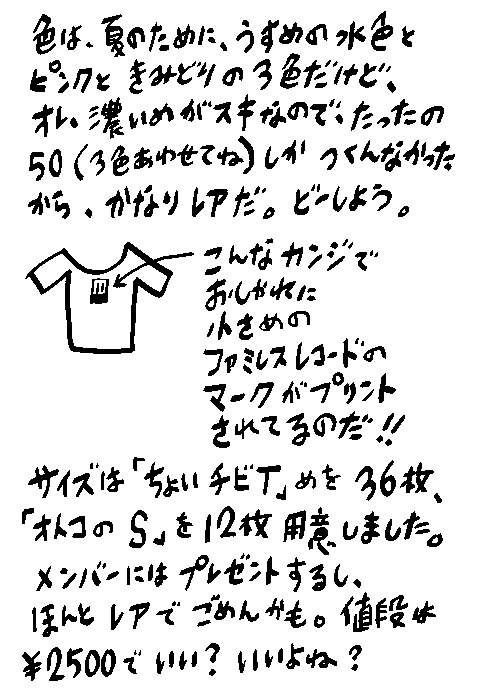 色は、夏のために、うすめの水色と
ピンクときみどりの3色だけど、
オレ、濃いめがスキなので、たったの
50(3色あわせてね)しかつくんなかった
から、かなりレアだ。どーしよう。
こんなカンジで
おしゃれに
小さめの
ファミレスレコードの
マークがプリント
されてるのだ!!
サイズは「ちょいチビT」めを36枚、
「オトコのS」を12枚用意しました。
メンバーにはプレゼントするし、
ほんとレアでごめんかも。値段は
¥2500でいい?いいよね?